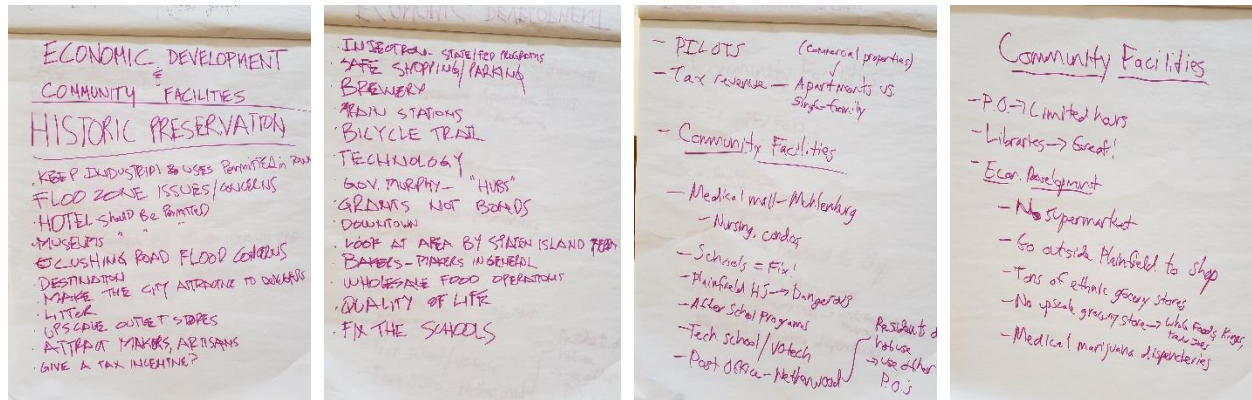 ECONOMIC DEVELOPMENT
&
COMMUNITY FACILITIES
HISTORIC PRESERVATION
· KEEP INDUSTRIAL USES Permitted in
· FLOOD ZONE ISSUES/CONCERNS
· HOTEL should Be Permitted
· MUSEUMS " " "
· CUSHING ROAD FLOOD CONCERNS
· DESTINATION
· MAKE THE CITY ATTRACTIVE TO
· LITTER
· UPSCALE OUTLET STORES
· ATTRACT MAKERS, ARTISANS
· GIVE A TAX INCENTIVE?
STATE/FED PROGRAMS
· SAFE SHOPPING/PARKING
· BREWERY
· TRAIN STATIONS
· BICYCLE TRAIL
· TECHNOLOGY
· GOV. MURPHY - "HUBS"
· GRANTS NOT BONDS
· DOWNTOWN
· LOOK AT AREA BY STATEN ISLAND
· BAKERS - MAKERS IN GENERAL
· WHOLESALE FOOD OPERATIONS
· QUALITY OF LIFE
· FIX THE SCHOOLS
- PILOTS (commercial properties)
- Tax revenue - Apartments vs.
Single-family
- Community Facilities
- Medical mall - Muhlenburg
- Nursing, condos
- Schools = Fix!
- Plainfield HS -> Dangerous
- After School Programs
- Tech school/votech
- Post Office - Netherwood
Residents do
not use
-> use other
P.O.'s
Community Facilities
- P.O. -> Limited hours
- Libraries -> Great!
- Econ. Development
- No supermarket
- Go outside Plainfield to shop
- Tons of ethnic grocery stores
- No upscale grocery store -> Whole Foods, Kings,
Trader Joes
- Medical marijuana dispenceries